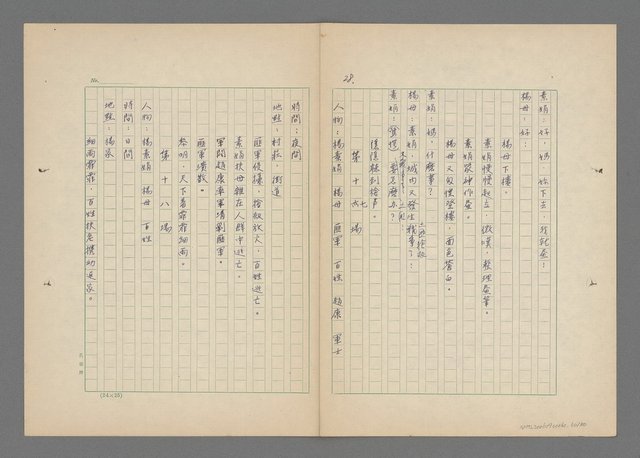 28.
素娟：好，媽，妳下去，我就來：
楊母：好：
楊母下樓。
素娟慢慢起立，微嘆，整理畫筆。
素娟聚神作畫。
楊母又倉惶登樓，面色蒼白。
素娟：媽，什麼事？
楊母：素娟，城內又發生戰事了：
素娟：爸爸，怎麼辦？
隱隱聽到槍聲。
第十七場
人物：楊素娟 楊母 匪軍 百姓 趙康 軍士
No.
時間：夜間
地點：村莊，街道
匪軍侵擾，搶殺放火，百姓逃亡。
素娟扶母雜在人群中逃亡。
軍閥趙康率軍清剿匪軍。
匪軍潰散。
黎明，天下著霏霏細雨。
第十八場
人物：楊素娟 楊母 百姓
時間：日間
地點：楊家
細雨霏霏，百姓扶老攜幼返家。
(24×25)